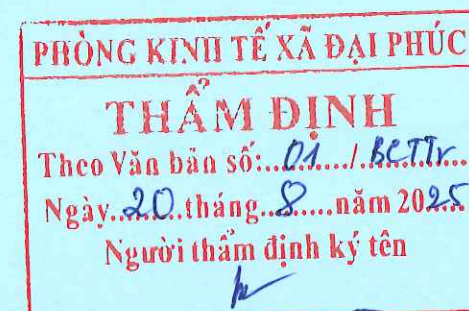 PHÒNG KINH TẾ XÃ ĐẠI PHÚC
THẨM ĐỊNH
Theo Văn bản số:..01..../.BCTTr...
Ngày..20..tháng..8....năm 2025
Người thẩm định ký tên